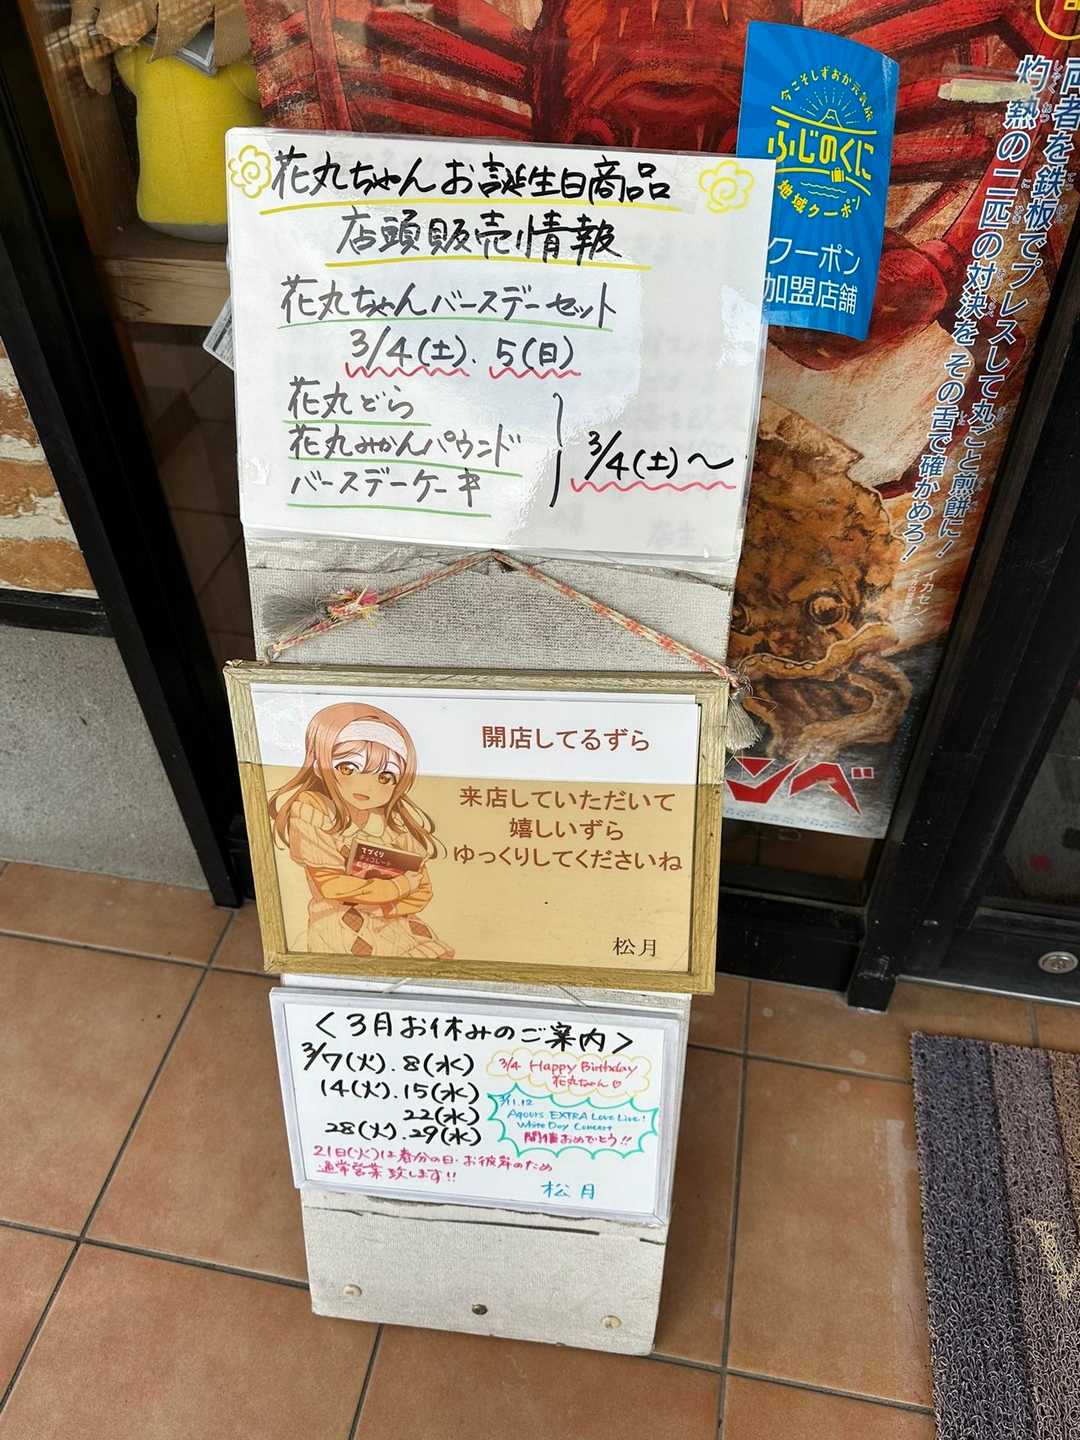 花丸ちゃんお誕生日商品
店頭販売情報
花丸ちゃんバースデーセット
3/4(土)、5(日)
花丸どら
花丸みかんパウンド
バースデーケーキ
3/4(土)〜
開店してるずら
来店していただいて
嬉しいずら
ゆっくりしてくださいね
松月
てづくり
チョコレート
<3月お休みのご案内>
3/7(火).8(水)
14(火).15(水)
22(水)
28(火).29(水)
21日(火)は春分の日・お彼岸のため
通常営業致します!!
3/4 Happy Birthday
花丸ちゃん♡
3/11.12
Aqours EXTRA Love Live!
White Day Concert
開催おめでとう!!
松月
今こそしずおか元気旅
ふじのくに
地域クーポン
クーポン
加盟店舗
両者を鉄板でプレスして丸ごと煎餅に!
灼熱の二匹の対決を その舌で確かめろ!
イカセンベ
ンベ